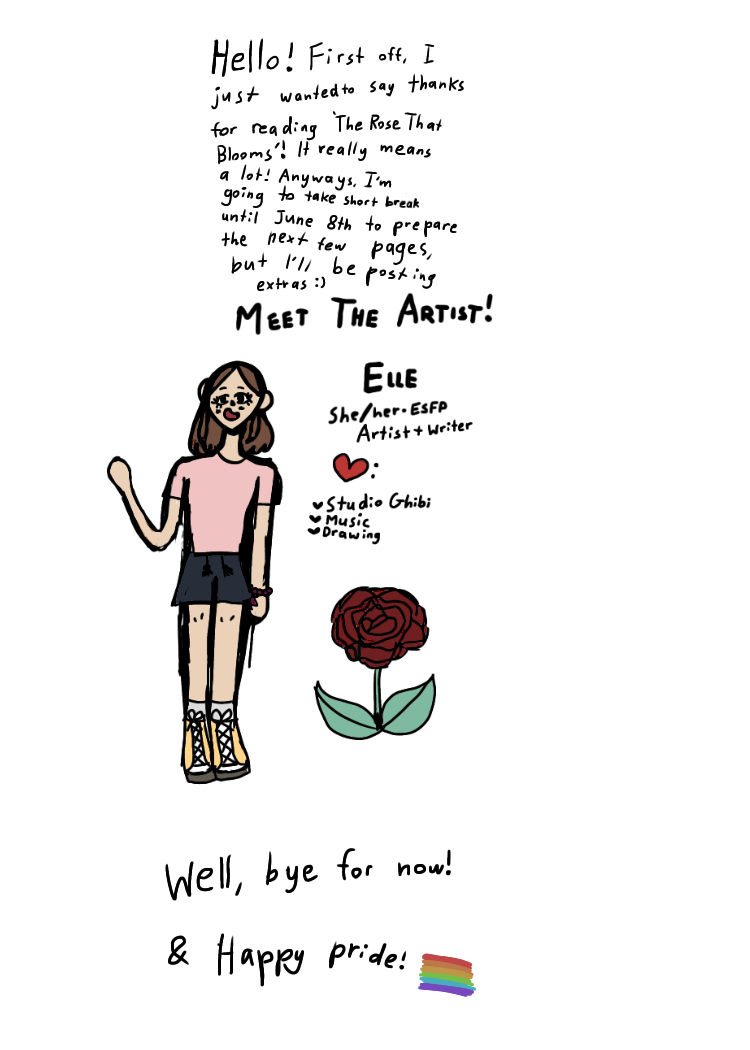 Hello! First off, I
just wanted to say thanks
for reading 'The Rose That
Blooms'! It really means
a lot! Anyways, I'm
going to take short break
until June 8th to prepare
the next few pages,
but I'll be posting
extras :)
MEET THE ARTIST!
ELLE
She/her • ESFP
Artist + Writer
❤:
Studio Ghibi
Music
Drawing
Well, bye for now!
& Happy pride!